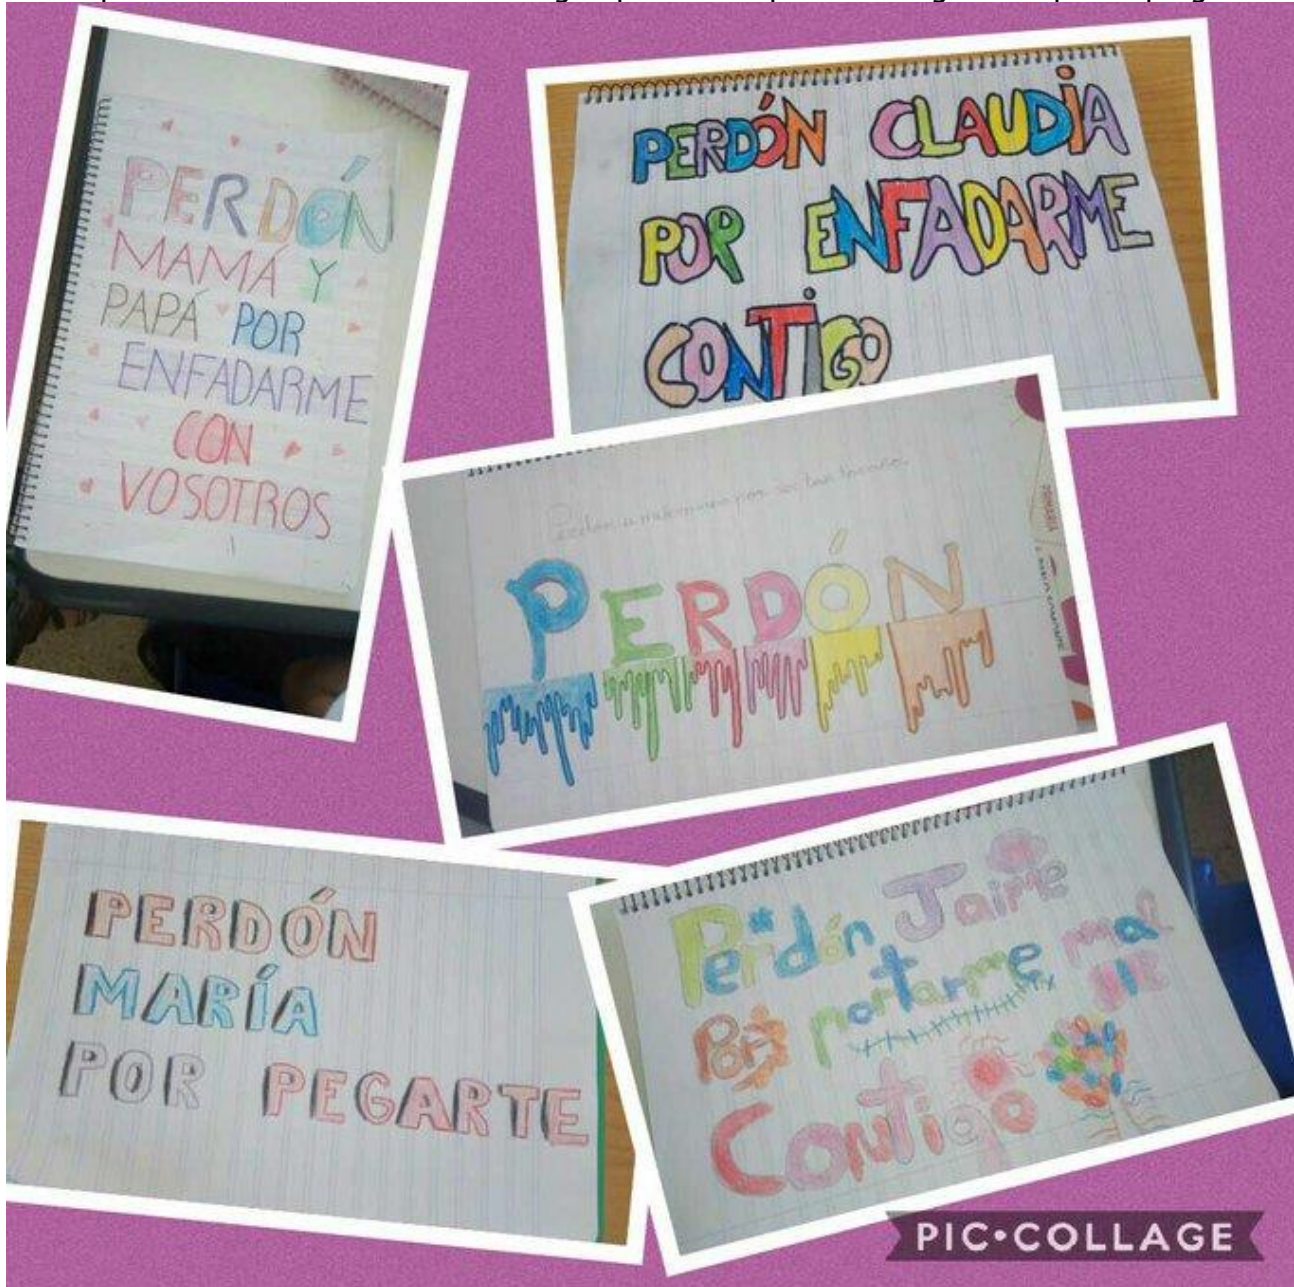 PERDÓN
MAMÁ Y
PAPÁ POR
ENFADARME
CON
VOSOTROS
PERDÓN CLAUDIA
POR ENFADARME
CONTIGO
por ser tan
PERDÓN
PERDÓN
MARÍA
POR PEGARTE
Perdón Jaime
Por portarme mal
Contigo
PIC•COLLAGE